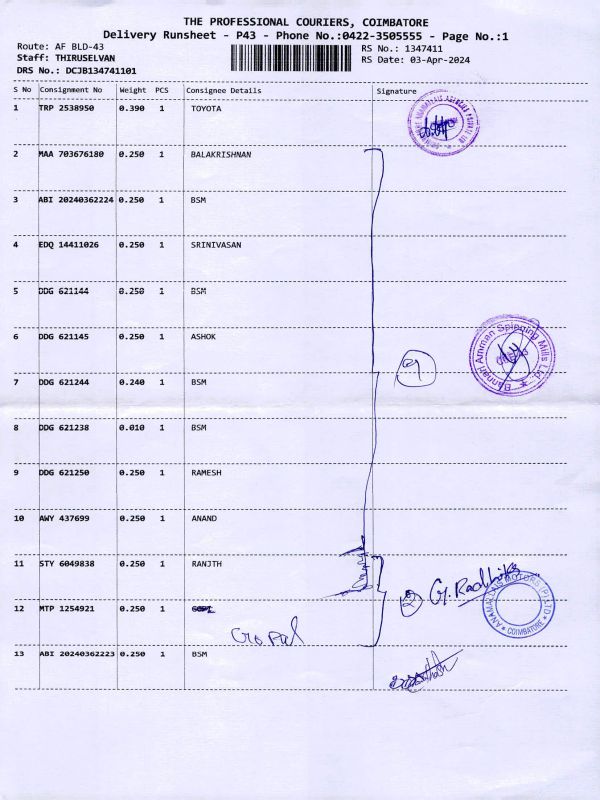 THE PROFESSIONAL COURIERS, COIMBATORE
Delivery Runsheet - P43 - Phone No.:0422-3505555 - Page No.:1
Route: AF BLD-43
RS No.: 1347411
Staff: THIRUSELVAN
RS Date: 03-Apr-2024
DRS No.: DCJB134741101
S No Consignment No Weight PCS Consignee Details Signature
1 TRP 2538950 0.390 1 TOYOTA
2 MAA 703676180 0.250 1 BALAKRISHNAN
3 ABI 20240362224 0.250 1 BSM
4 EDQ 14411026 0.250 1 SRINIVASAN
5 DDG 621144 0.250 1 BSM
6 DDG 621145 0.250 1 ASHOK
Bannari Amman Spinning Mills Ltd.
9
7 DDG 621244 0.240 1 BSM
8 DDG 621238 0.010 1 BSM
9 DDG 621250 0.250 1 RAMESH
10 AWY 437699 0.250 1 ANAND
11 STY 6049838 0.250 1 RANJTH
2 G. Radhika
ANAMALLAIS MOTORS (P) LTD
COIMBATORE
12 MTP 1254921 0.250 1 GOPI
Gopal
13 ABI 20240362223 0.250 1 BSM